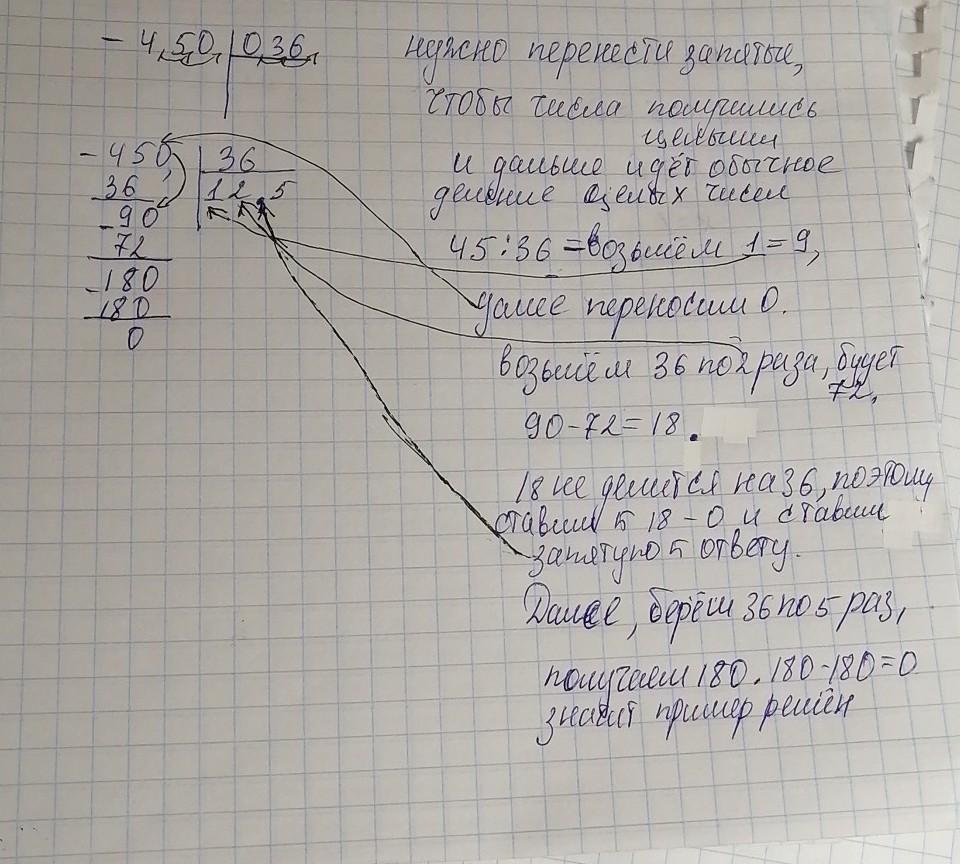 - 4,50 0,36
нужно перенести запятые,
чтобы числа получились
целыми
и дальше идёт обычное
деление целых чисел
- 450 36
36 12,5
- 90
72
- 180
180
0
45:36 = возьмём 1=9,
далее переносим 0.
возьмём 36 по 2 раза, будет
72,
90-72=18.
18 не делится на 36, поэтому
ставим к 18 - 0 и ставим
запятую к ответу.
Далее, берём 36 по 5 раз,
получаем 180. 180-180=0
значит пример решён